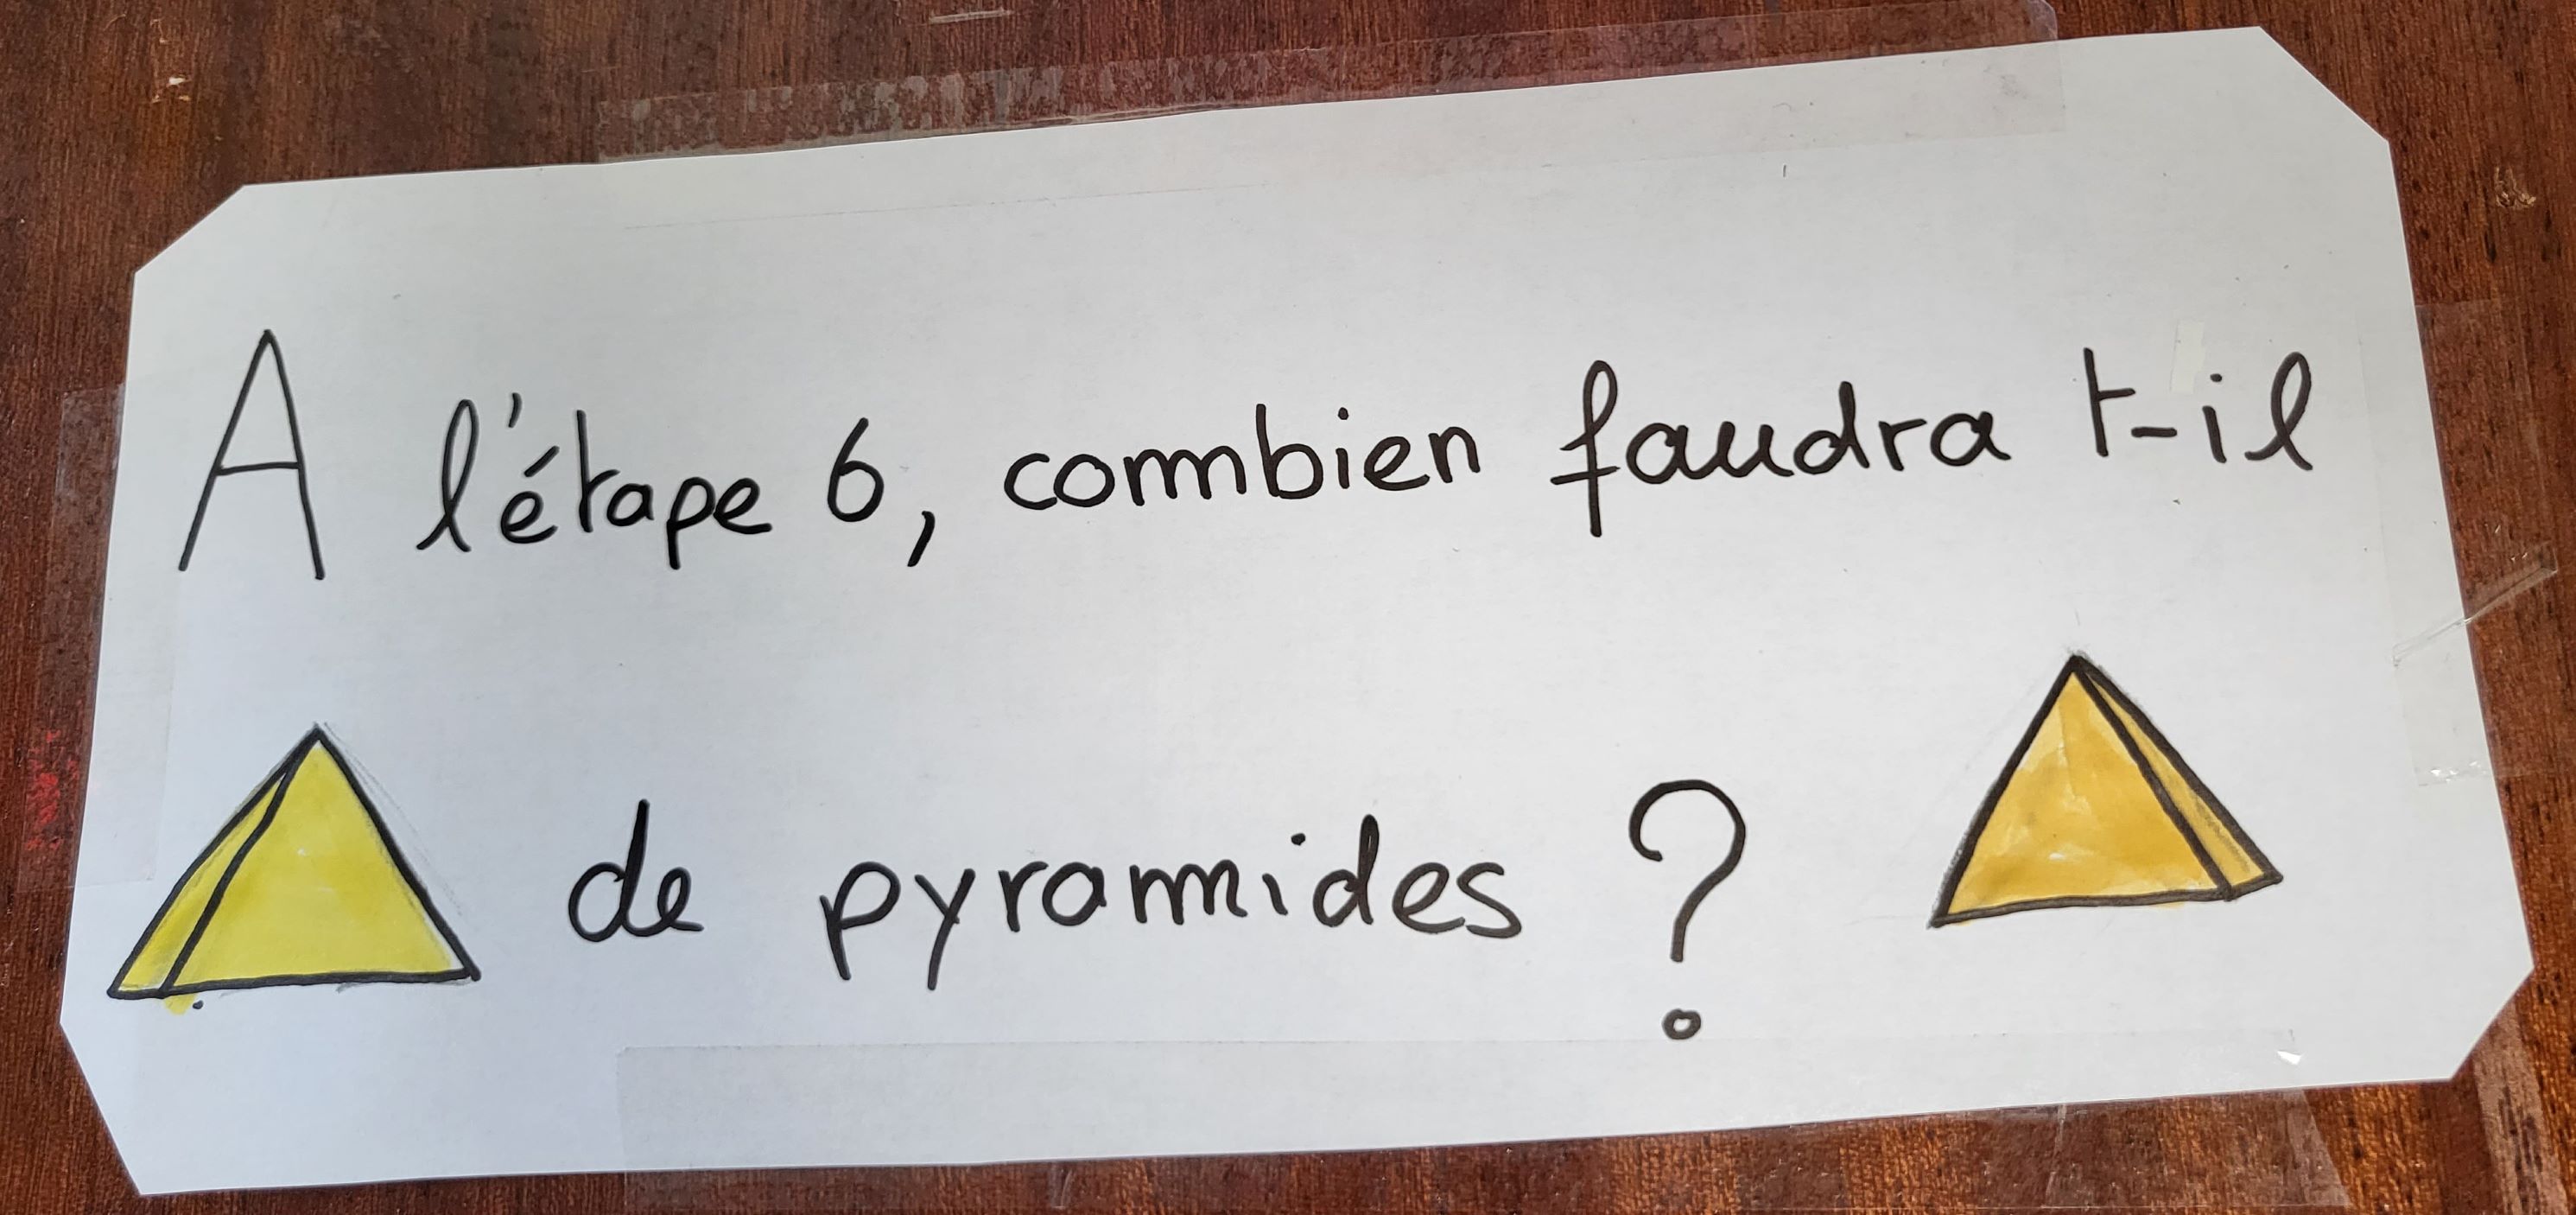 A l'étape 6, combien faudra t-il
de pyramides ?